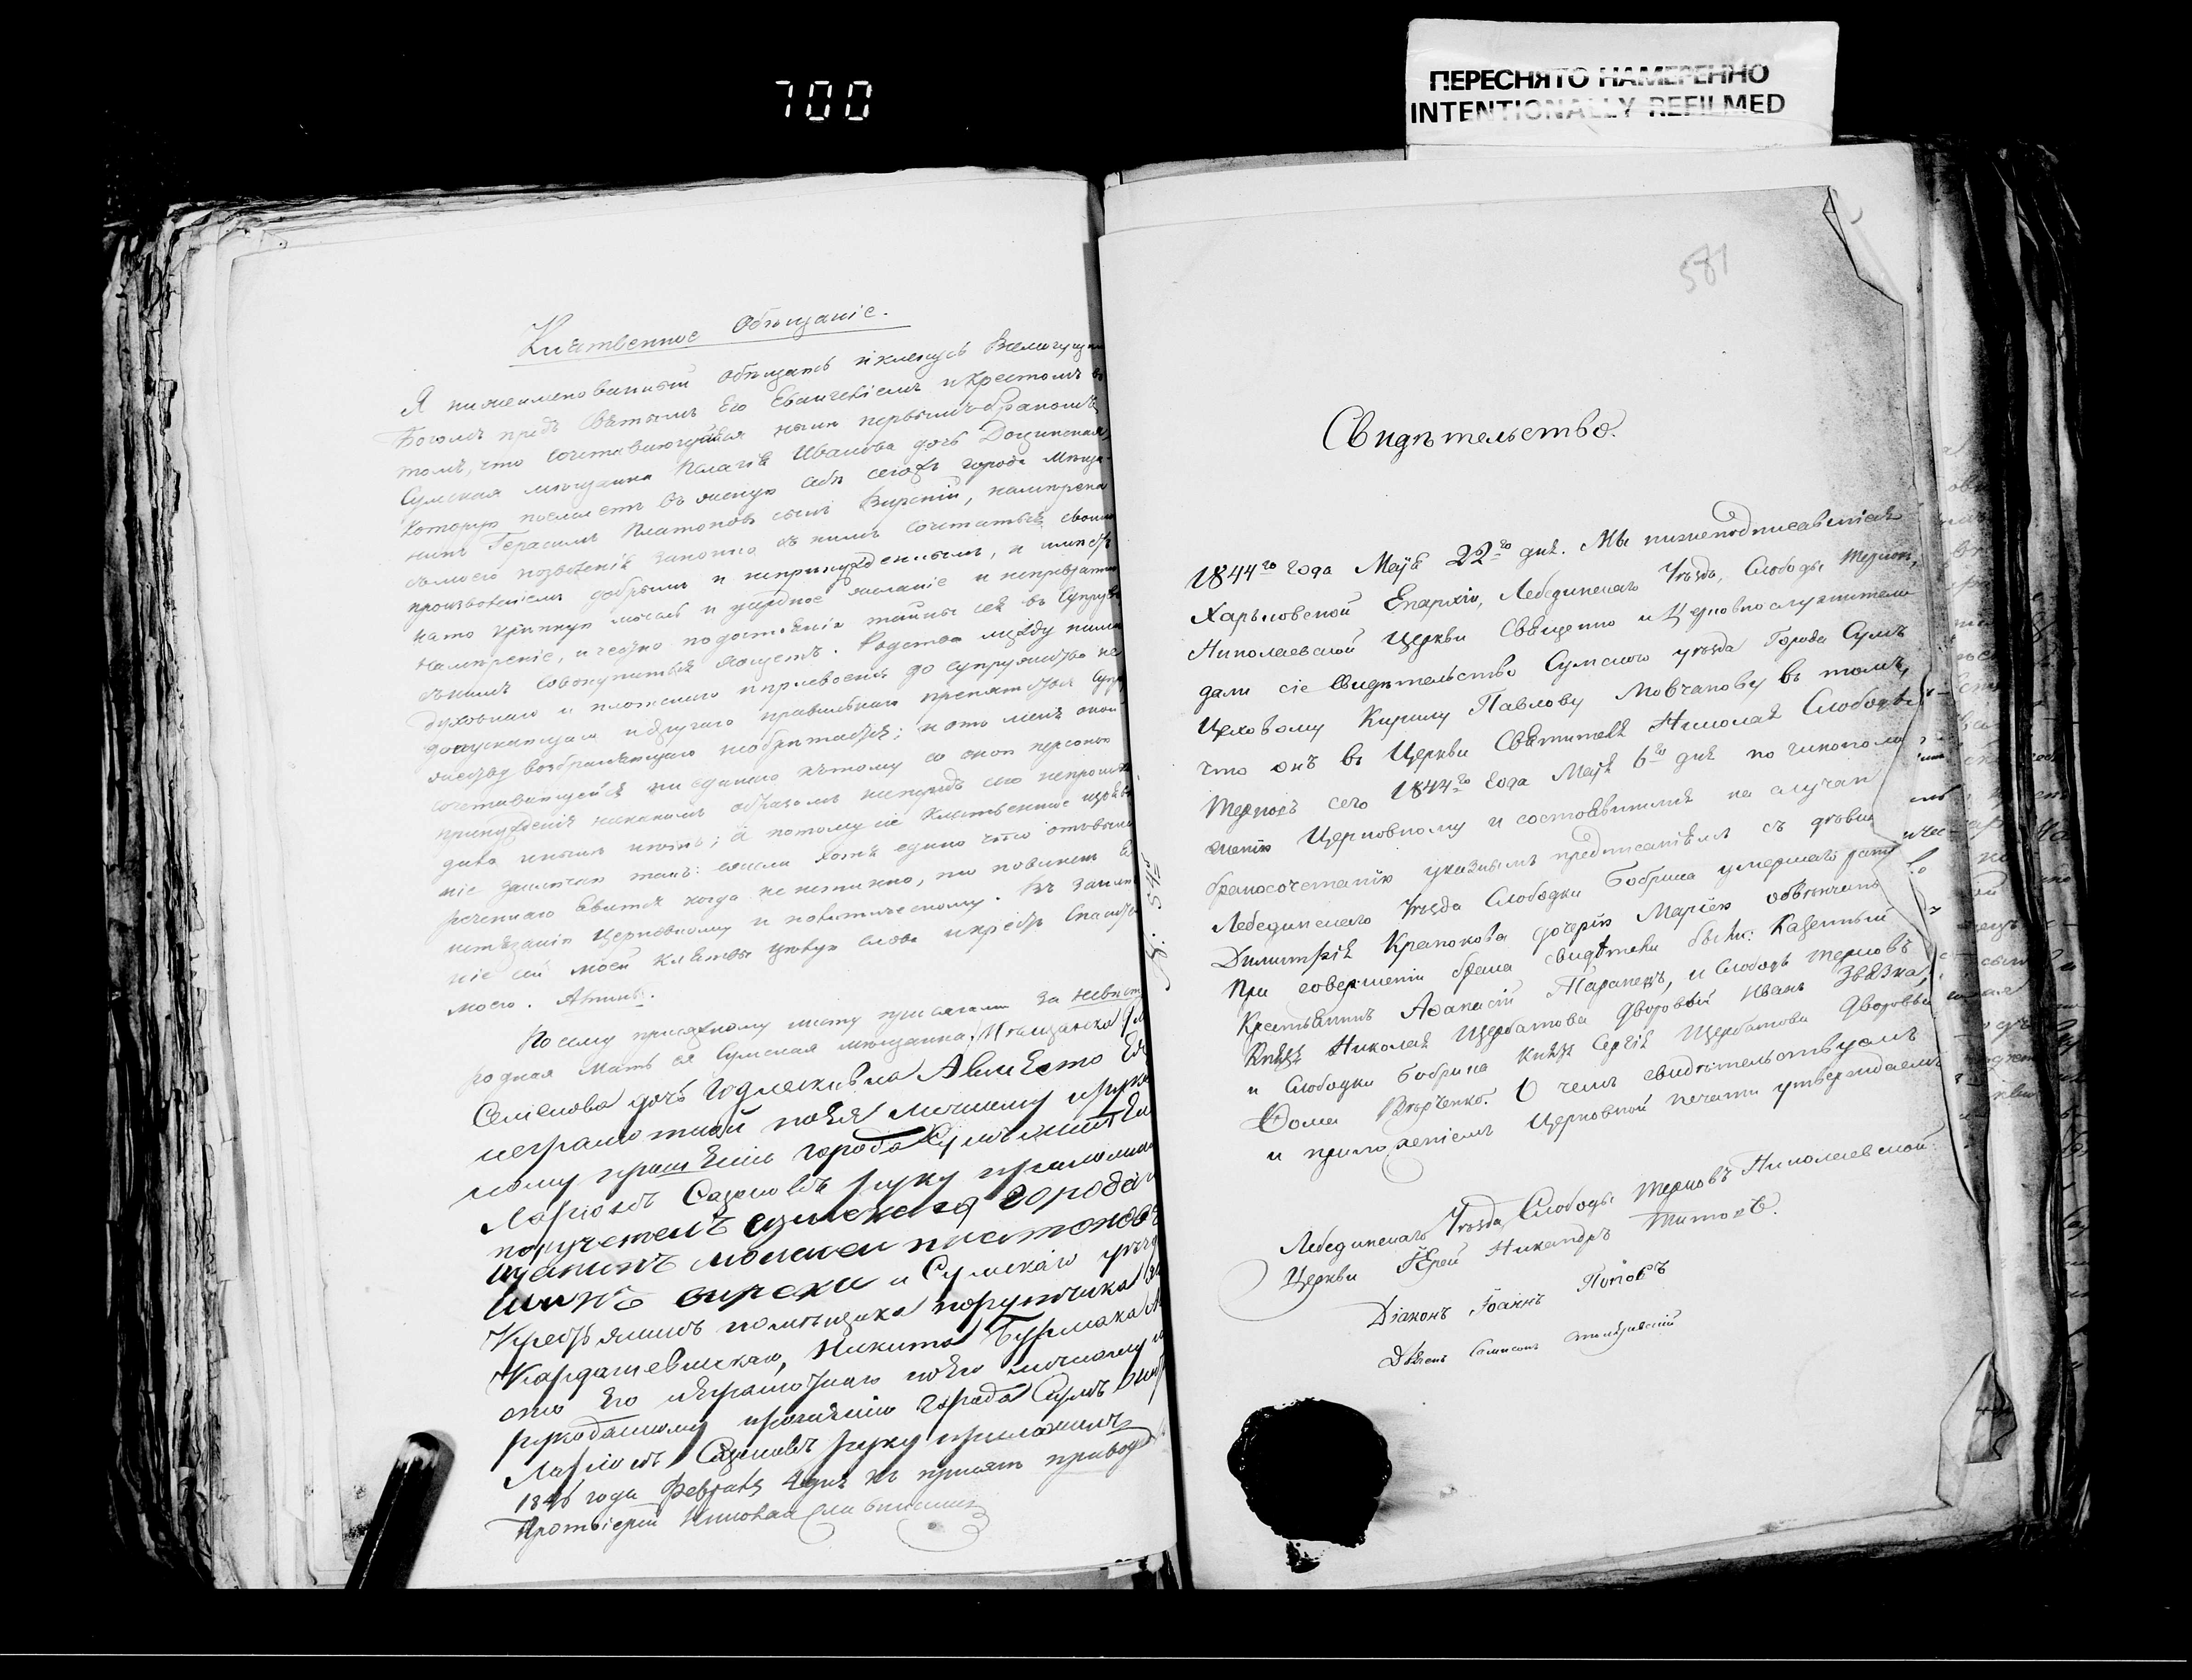 700
ПЕРЕСНЯТО НАМЕРЕННО
INTENTIONALLY REFILMED
Клятвенное Обѣщаніе.
Я нижеименованный обѣщаюсь и кленусь Всемогущимъ
Богомъ предъ Святымъ Его Евангеліемъ и Крестомъ въ
томъ, что сочетавающуюся нынѣ первымъ бракомъ
Сумская мѣщанка Пелагія Иванова дочь
которую поемлетъ въ жену себѣ сегожъ города мѣща-
нинъ Герасимъ Платоновъ сынъ Вирскій, намѣрена
съ моего позволенія законно съ нимъ сочетаться своимъ
произволеніемъ добрымъ и непринужденнымъ, и имѣетъ
на то крѣпкую мысль и усердное желаніе и непревратное
намѣреніе, и чесно по достоянію тайны сея въ Супруж
съ нимъ совокупиться хощетъ. Родства между ними
духовнаго и плотскаго и присвоенія до супружества не
допускающаго и другаго правильнаго препятствія Супру
жеству возбраняющаго необрѣтается; и отъ мене оной
сочетавающейся ни единаго къ тому со оной персоною
принужденія никакимъ образомъ напредъ сего непроисхо
дило нынѣ нѣтъ; а потому сіе Клятвенное
ніе заключаю тако: ежели хотя едино что отъ выше
реченнаго явится когда не истинно, то повиненъ
истязанію Церковному и политическому. Въ заключе
ніе сей моей клятвы цѣлую слова и крестъ Спасителя
моего. Аминь.
По сему присяжному листу присягали за невѣсту
родная мать ея Сумская мѣщанка
Семенова дочь а вместо Ея
неграмотной по Ея личному и руко
ному прошенію города Сумъ
Ларіонъ Сазоновъ руку приложилъ
поручителъ сумскаго города
щанинъ платоновъ
сынъ вирски и Сумскаго уезда
Крестьянинъ помѣщика порутчика
Кардашевскаго, Никита Бурлака
ото Его неграмотнаго по Его личному и
рукоданному прошенію города Сумъ
Ларіонъ Сазоновъ руку приложилъ
1846 года Февраля 4 дня къ присягѣ приводилъ
Протоіерей Николай
581
Свидѣтельство.
1844го года Маія 22го дня. Мы нижеподписавшіеся
Харьковской Епархіи, Лебединскаго Уѣзда, Слободы Терновъ,
Николаевской Церкви Священно и Церковнослужители
дали сіе свидѣтельство Сумскаго уѣзда Города Сумъ
Цеховому Кирилу Павлову Мовчанову въ томъ,
что онъ въ Церкви Святителя Николая Слободы
Терновъ сего 1844го года Маія 6го дня по чинополо
женію Церковному и состоявшимся на случай
бракосочетанію указнымъ предписаніямъ съ дѣвицею
Лебединскаго Уѣзда Слободки Бобрика умершаго
Димитрія дочерію Маріею обвѣнчанъ
При совершеніи брака свидѣтели были: Казенный
Крестьянинъ Афанасій Таранецъ, и Слободы Терновъ
Князя Николая Щербатова дворовый Иванъ Звязка,
и Слободки Бобрика Князя Сергія Щербатова дворовый
Фома О чемъ свидѣтельствуемъ
и приложеніемъ Церковной печати утверждаемъ
Лебединскаго Уѣзда Слободы Терновъ Николаевской
Церкви Іерей Никандръ Титовъ.
Діаконъ Іоаннъ Поповъ